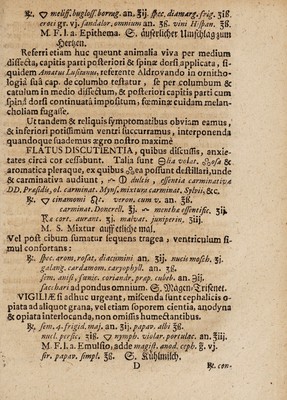 ℞. 🜄 meliss. bugloss. borrag. an. ℥ij. spec. diamarg. frig. ʒß.
croci gr. vj. sandalor. omnium an. ℈ß. vini Hispan. ℥ß.
M. F. l. a. Epithema. S. äusserlicher Umschlag zum
Hertzen.
Referri etiam huc queunt animalia viva per medium
dissecta, capitis parti posteriori & spinæ dorsi applicata, si-
quidem Amatus Lusitanus, referente Aldrovando in ornitho-
logia suâ cap. de columbo testatur, se per columbum &
catulum in medio dissectum, & posteriori capitis parti cum
spinâ dorsi continuatâ impositum, fœminæ cuidam melan-
choliam fugasse.
Ut tandem & reliquis symptomatibus obviam eamus,
& inferiori potissimum ventri succurramus, interponenda
quandoque suademus ægro nostro maximè
FLATUS DISCUTIENTIA, quibus discussis, anxie-
tates circâ cor cessabunt. Talia sunt 🜔lia volat. 🝆osa &
aromatica pleraque, ex quibus 🝆ea possunt destillari, unde
& carminativa audiunt, dulcis, essentia carminativa
DD. Præsidis, el. carminat. Myns. mixtur. carminat. Sylvii, &c.
℞. 🜄 cinamomi cum veron. cum v. an. ℥ß.
carminat. Doncrell. ʒj. menthæ essentific. ʒij.
℞æ cort. aurant. ʒj. malvat. juniperin. ℥iij.
M. S. Mixtur auff etliche mal.
Vel post cibum sumatur sequens tragea, ventriculum si-
mul confortans:
℞. spec. arom. rosat. diacumini an. ʒij. nucis mosch. ʒj.
galang. cardamom. caryophyll. an. ℈ß.
sem. anisi, fœnic. coriandr. præp. cubeb. an. ʒß.
sacchari ad pondus omnium. S. Magen-Trisenet.
VIGILIÆ si adhuc urgeant, miscenda sunt cephalicis o-
piata ad aliquot grana, vel etiam soporem cientia, anodyna
& opiata interlocanda, non omissis humectantibus.
℞. sem. 4. frigid. maj. an. ʒij. papav. albi ℥ß.
nucl. persic. ℥iß. 🜄 nymph. violar. portulac. an. ℥iij.
M. F. l. a. Emulsio, adde magist. anod. ceph. g. vj.
sir. papav. simpl. ℥ß. S. Kühlmilch.
D ℞. con-